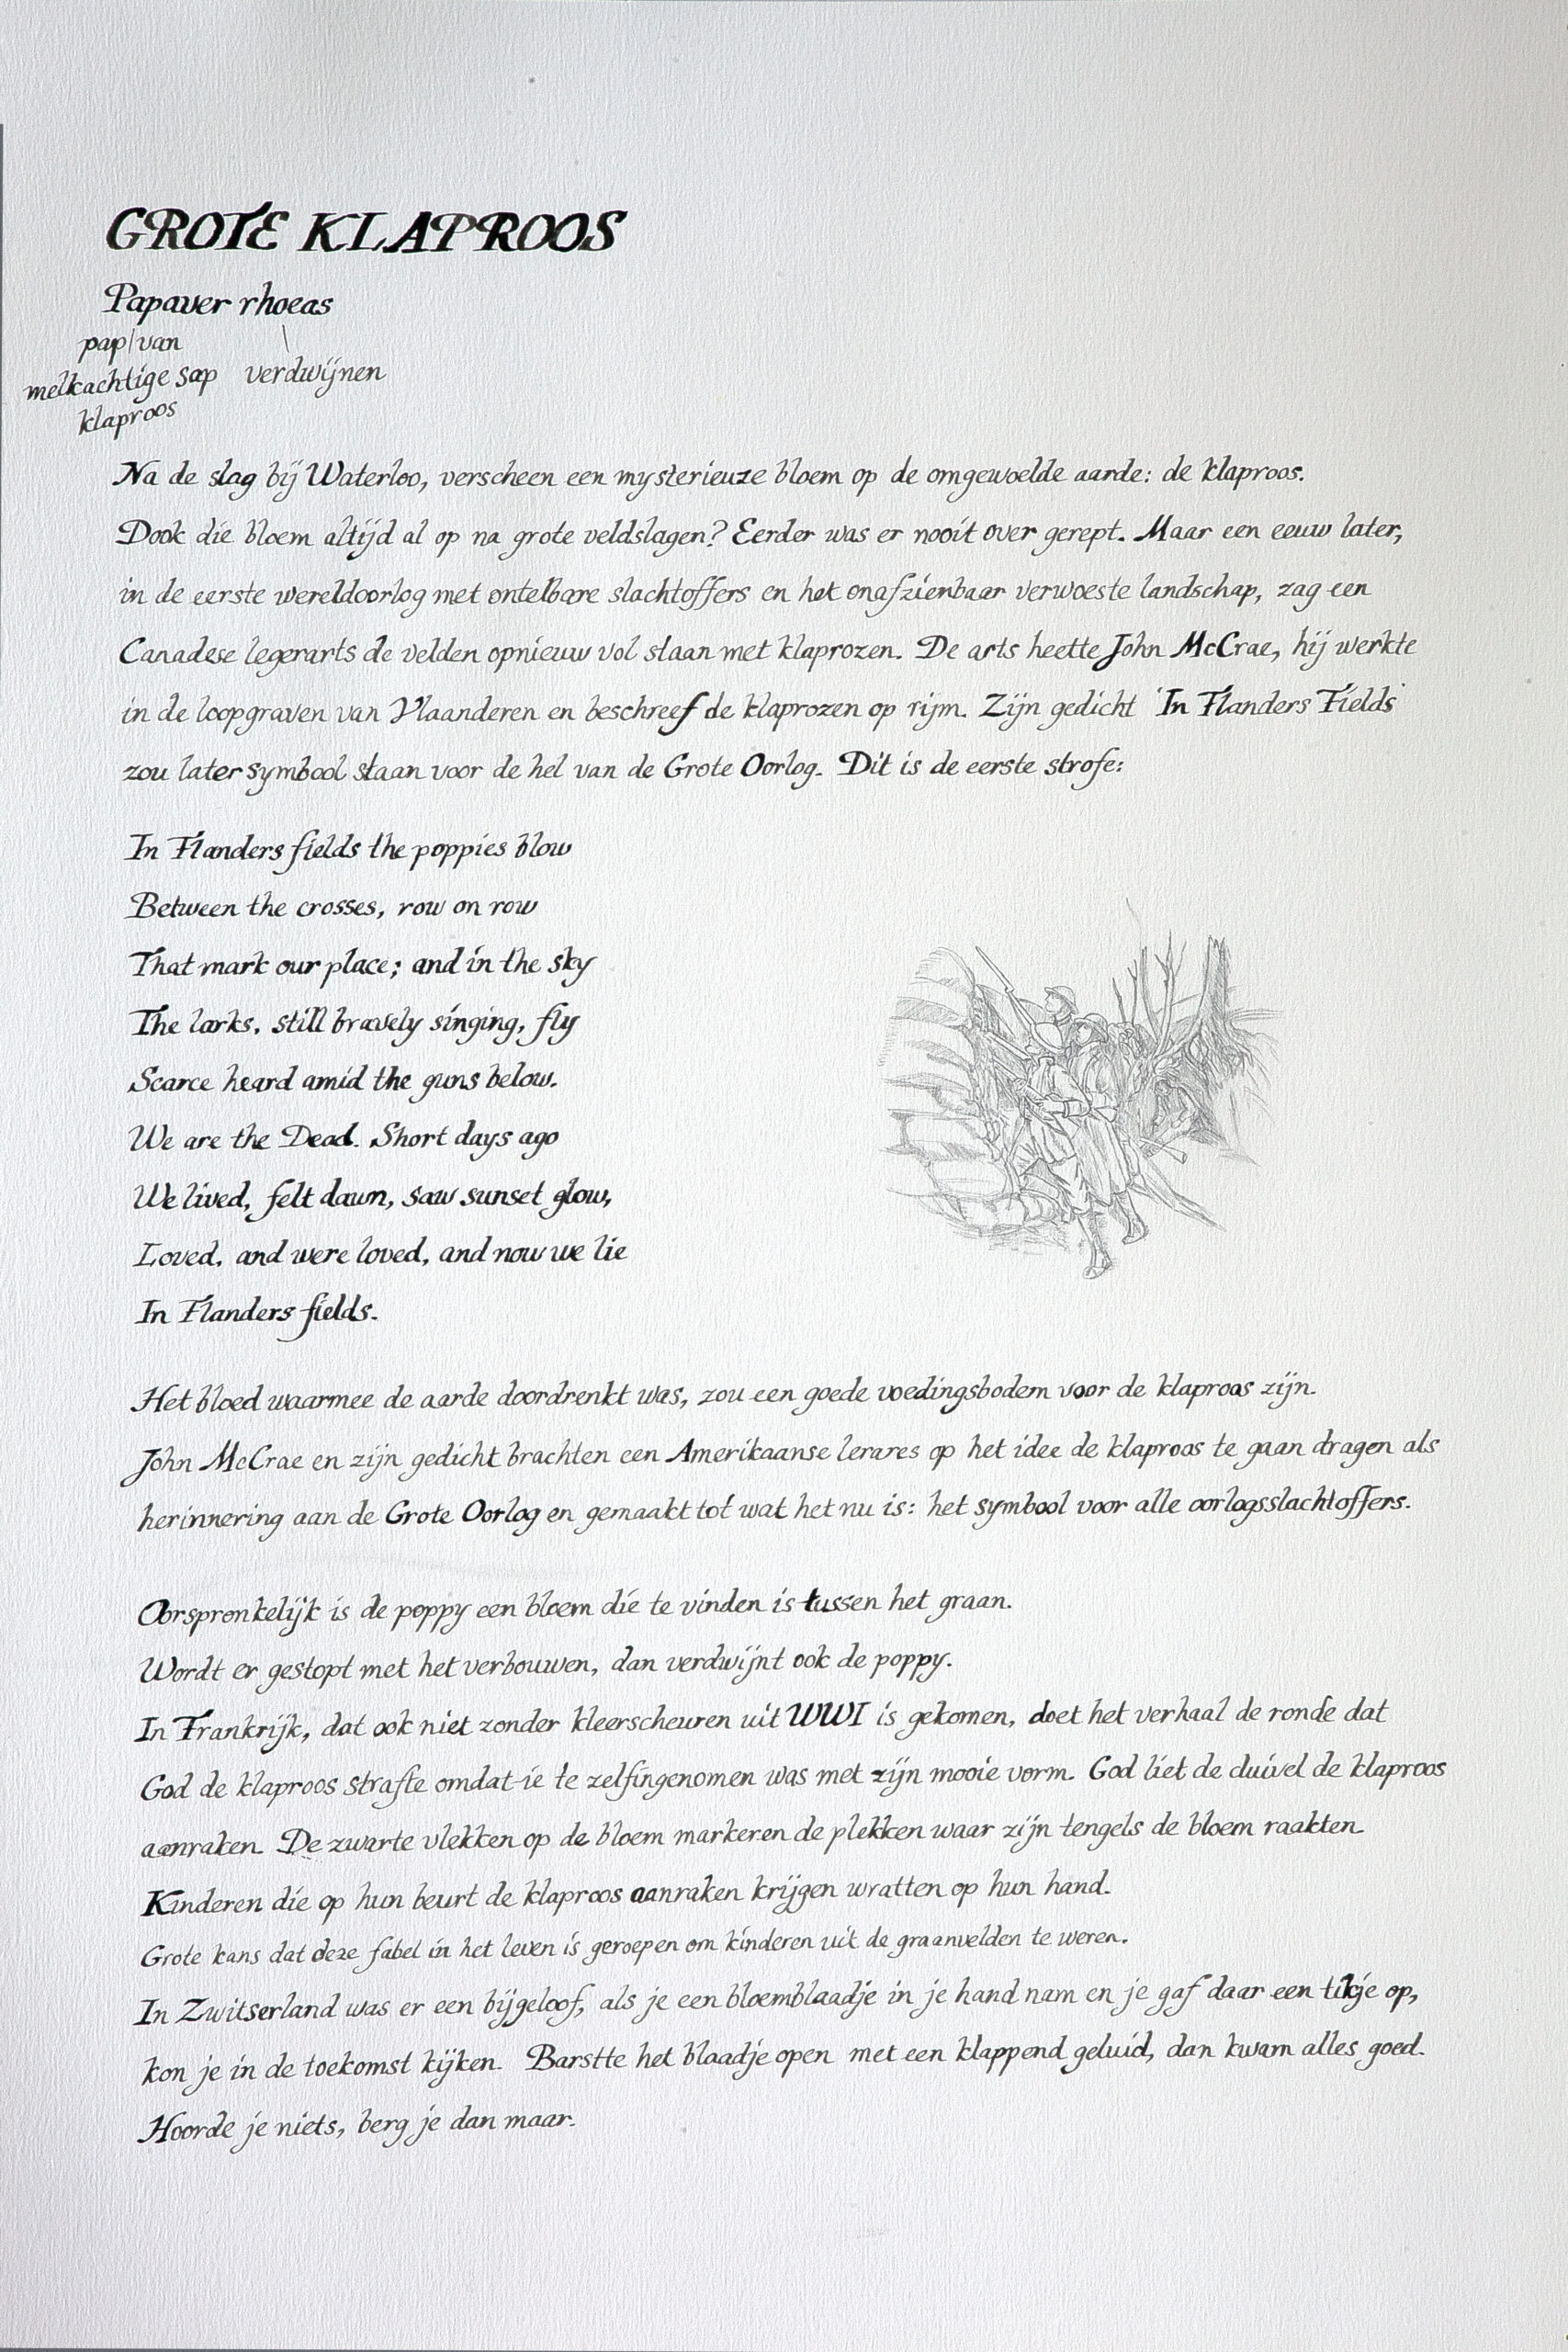 GROTE KLAPROOS
Papaver rhoeas
pap/van
melkachtige sap verdwijnen
klaproos
Na de slag bij Waterloo, verscheen een mysterieuze bloem op de omgewoelde aarde: de klaproos.
Dook die bloem altijd al op na grote veldslagen? Eerder was er nooit over gerept. Maar een eeuw later,
in de eerste wereldoorlog met ontelbare slachtoffers en het onafzienbaar verwoeste landschap, zag een
Canadese legerarts de velden opnieuw vol staan met klaprozen. De arts heette John McCrae, hij werkte
in de loopgraven van Vlaanderen en beschreef de klaprozen op rijm. Zijn gedicht 'In Flanders Fields'
zou later symbool staan voor de hel van de Grote Oorlog. Dit is de eerste strofe:
In Flanders fields the poppies blow
Between the crosses, row on row
That mark our place; and in the sky
The larks, still bravely singing, fly
Scarce heard amid the guns below.
We are the Dead. Short days ago
We lived, felt dawn, saw sunset glow,
Loved, and were loved, and now we lie
In Flanders fields.
Het bloed waarmee de aarde doordrenkt was, zou een goede voedingsbodem voor de klaproos zijn.
John McCrae en zijn gedicht brachten een Amerikaanse lerares op het idee de klaproos te gaan dragen als
herinnering aan de Grote Oorlog en gemaakt tot wat het nu is: het symbool voor alle oorlogsslachtoffers.
Oorspronkelijk is de poppy een bloem die te vinden is tussen het graan.
Wordt er gestopt met het verbouwen, dan verdwijnt ook de poppy.
In Frankrijk, dat ook niet zonder kleerscheuren uit WWI is gekomen, doet het verhaal de ronde dat
God de klaproos strafte omdat-ie te zelfingenomen was met zijn mooie vorm. God liet de duivel de klaproos
aanraken. De zwarte vlekken op de bloem markeren de plekken waar zijn tengels de bloem raakten.
Kinderen die op hun beurt de klaproos aanraken krijgen wratten op hun hand.
Grote kans dat deze fabel in het leven is geroepen om kinderen uit de graanvelden te weren.
In Zwitserland was er een bijgeloof, als je een bloemblaadje in je hand nam en je gaf daar een tikje op,
kon je in de toekomst kijken. Barstte het blaadje open met een klappend geluid, dan kwam alles goed.
Hoorde je niets, berg je dan maar.